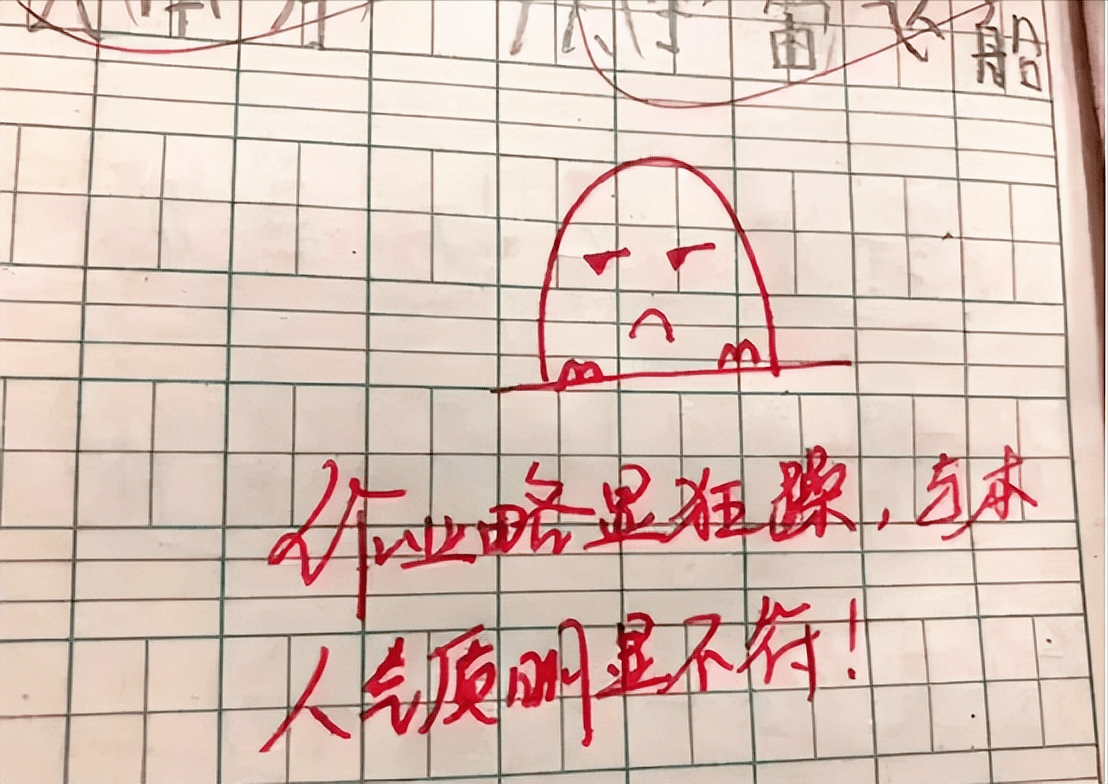 雷飞船
作业略显狂躁，与本
人气质明显不符！